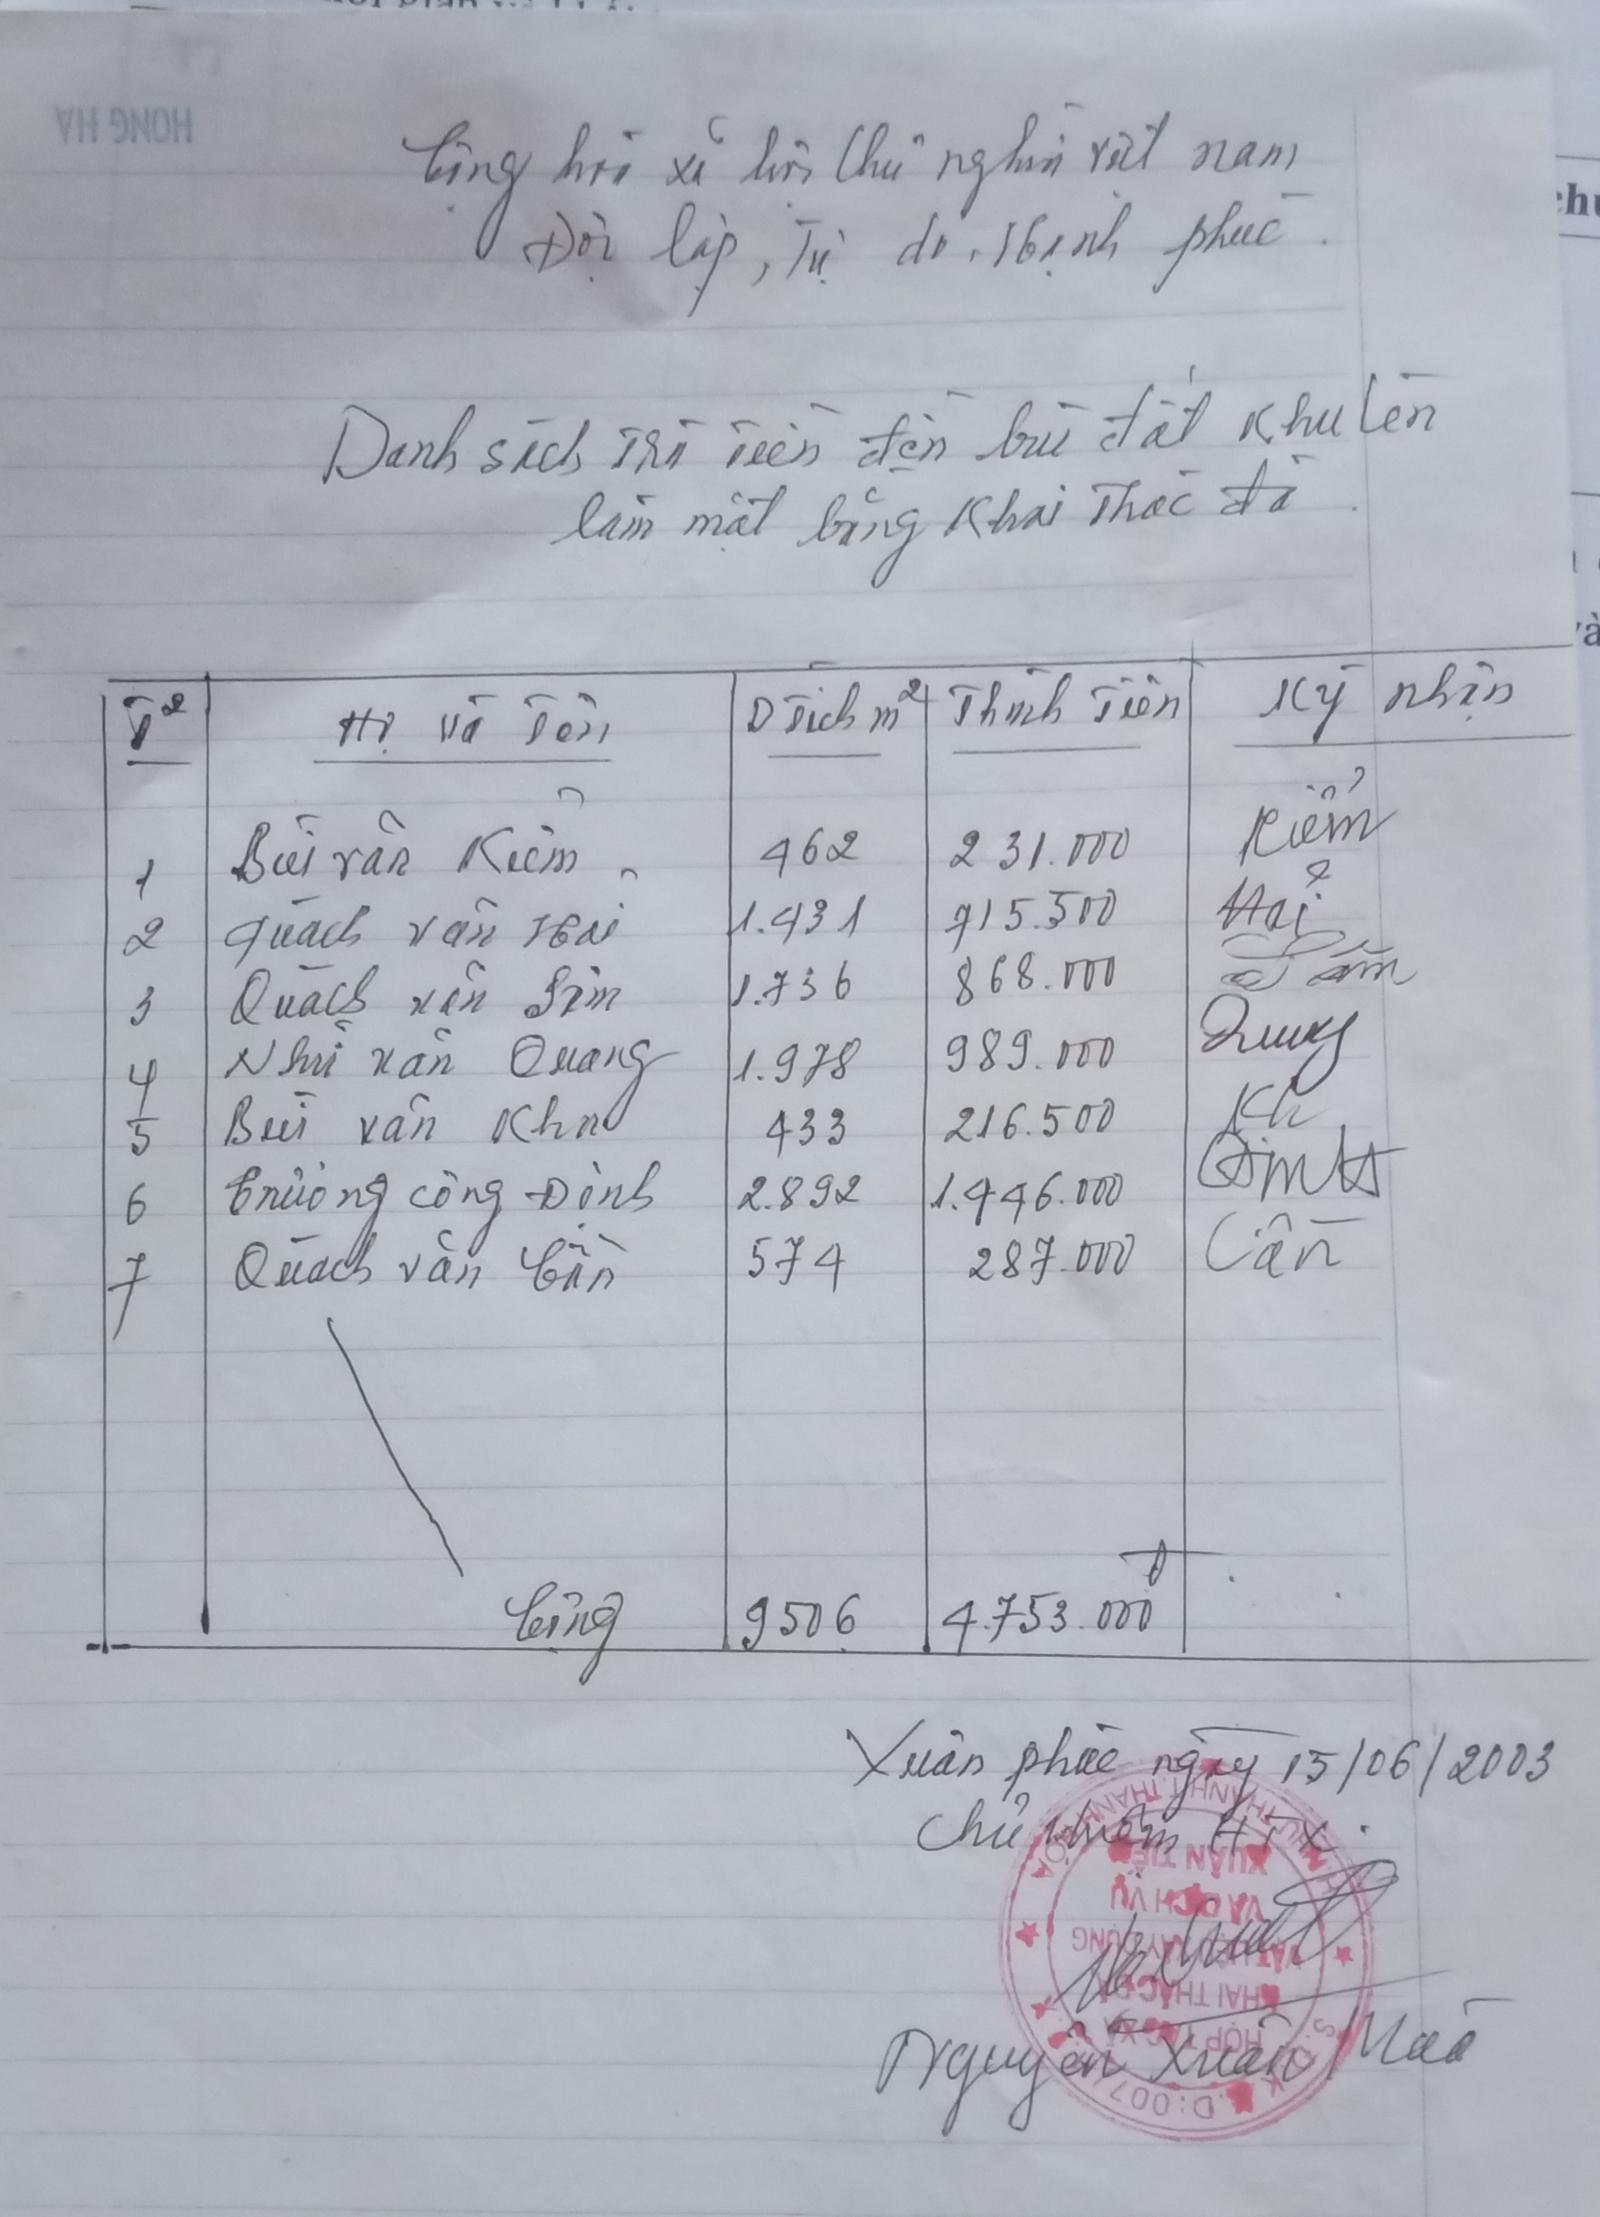 HONG HA
Cộng hòa xã hội chủ nghĩa việt nam
Độc lập, Tự do, Hạnh phúc.
Danh sách trả tiền đền bù đất khu lèn
làm mặt bằng khai thác đá.
T² Họ và Tên D Tích m² Thành Tiền Ký nhận
1 Bùi văn Kiểm 462 231.000 Kiểm
2 Quách văn Hải 1.431 715.500 Hải
3 Quách văn 1.736 868.000
4 Như văn Quang 1.978 989.000 Quang
5 Bùi văn 433 216.500 Kh
6 Trương công Định 2.892 1.446.000
7 Quách văn Cần 574 287.000 Cần
Cộng 9506 4.753.000đ
Xuân phúc ngày 15/06/2003
Chủ nhiệm HTX.
HỢP TÁC XÃ
KHAI THÁC ĐÁ
VẬT LIỆU XÂY DỰNG
VÀ DỊCH VỤ
XUÂN TIẾN
Nguyễn Xuân